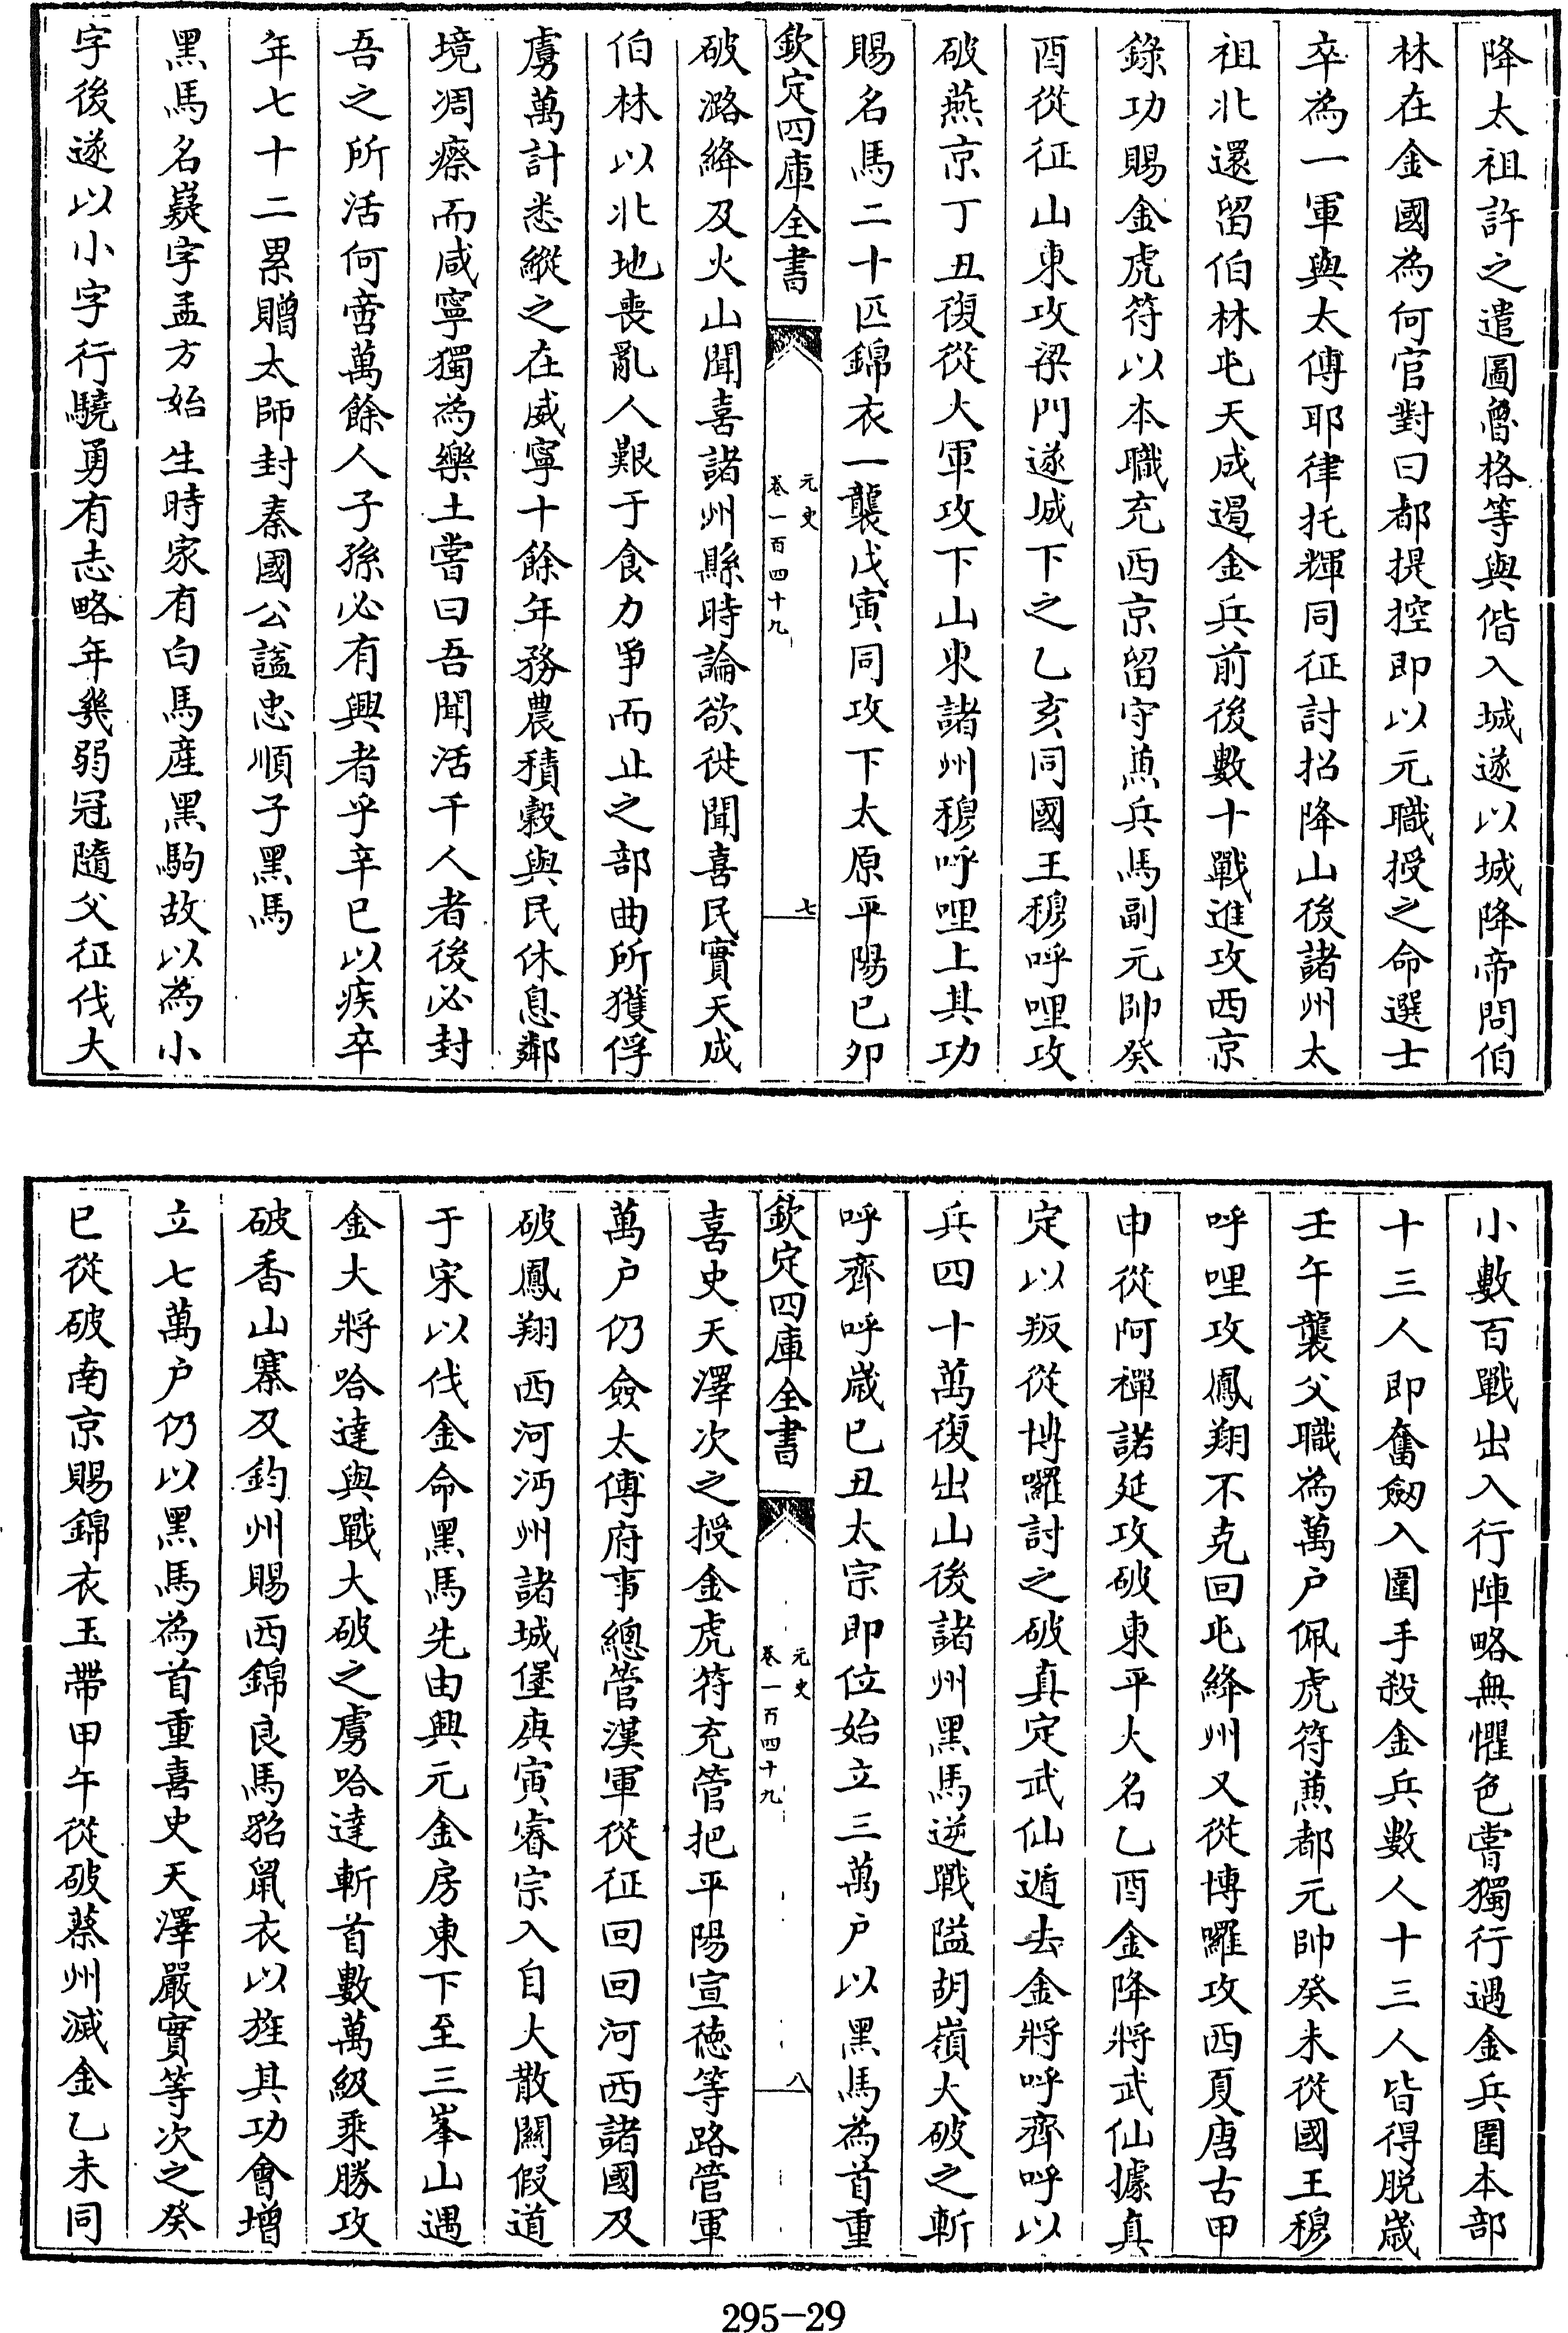 降太祖許之遣圖魯格等與偕入城遂以城降帝問伯
林在金國為何官對曰都提控即以元職授之命選士
卒為一軍與太傅耶律托輝同征討招降山後諸州太
祖北還留伯林屯天成遏金兵前後數十戰進攻西京
錄功賜金虎符以本職充西京留守兼兵馬副元帥癸
酉從征山東攻梁門遂城下之乙亥同國王穆呼哩攻
破燕京丁丑復從大軍攻下山東諸州穆呼哩上其功
賜名馬二十匹錦衣一襲戊寅同攻下太原平陽已卯
欽定四庫全書
元史
卷一百四十九
七
破潞絳及火山聞喜諸州縣時論欲徙聞喜民實天成
伯林以北地喪亂人艱于食力爭而止之部曲所獲俘
虜萬計悉縱之在威寧十餘年務農積穀與民休息鄰
境凋瘵而咸寧獨為樂土嘗曰吾聞活千人者後必封
吾之所活何啻萬餘人子孫必有興者乎辛巳以疾卒
年七十二累贈太師封秦國公諡忠順子黑馬
黑馬名嶷字孟方始生時家有白馬產黑駒故以為小
字後遂以小字行驍勇有志略年幾弱冠隨父征伐大
小數百戰出入行陣略無懼色嘗獨行遇金兵圍本部
十三人即奮劒入圍手殺金兵數人十三人皆得脫歲
壬午襲父職為萬戶佩虎符兼都元帥癸未從國王穆
呼哩攻鳳翔不克回屯絳州又從博囉攻西夏唐古甲
申從阿禪諾延攻破東平大名乙酉金降將武仙據真
定以叛從博囉討之破真定武仙遁去金將呼齊呼以
兵四十萬復出山後諸州黑馬逆戰隘胡嶺大破之斬
呼齊呼歲已丑太宗即位始立三萬戶以黑馬為首重
欽定四庫全書
元史
卷一百四十九
八
喜史天澤次之授金虎符充管把平陽宣德等路管軍
萬戶仍僉太傅府事總管漢軍從征回回河西諸國及
破鳳翔西河沔州諸城堡庚寅睿宗入自大散關假道
于宋以伐金命黑馬先由興元金房東下至三峯山遇
金大將哈達與戰大破之虜哈達斬首數萬級乘勝攻
破香山寨及鈞州賜西錦良馬貂鼠衣以旌其功會增
立七萬戶仍以黑馬為首重喜史天澤嚴實等次之癸
巳從破南京賜錦衣玉帶甲午從破蔡州滅金乙未同
295-29